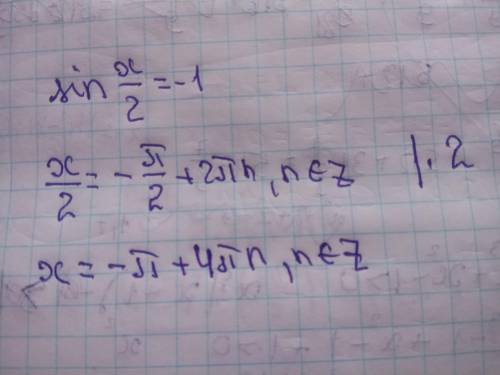 sin x/2 = -1
x/2 = -π/2 + 2πn, n ∈ Z |·2
x = -π + 4πn, n ∈ Z